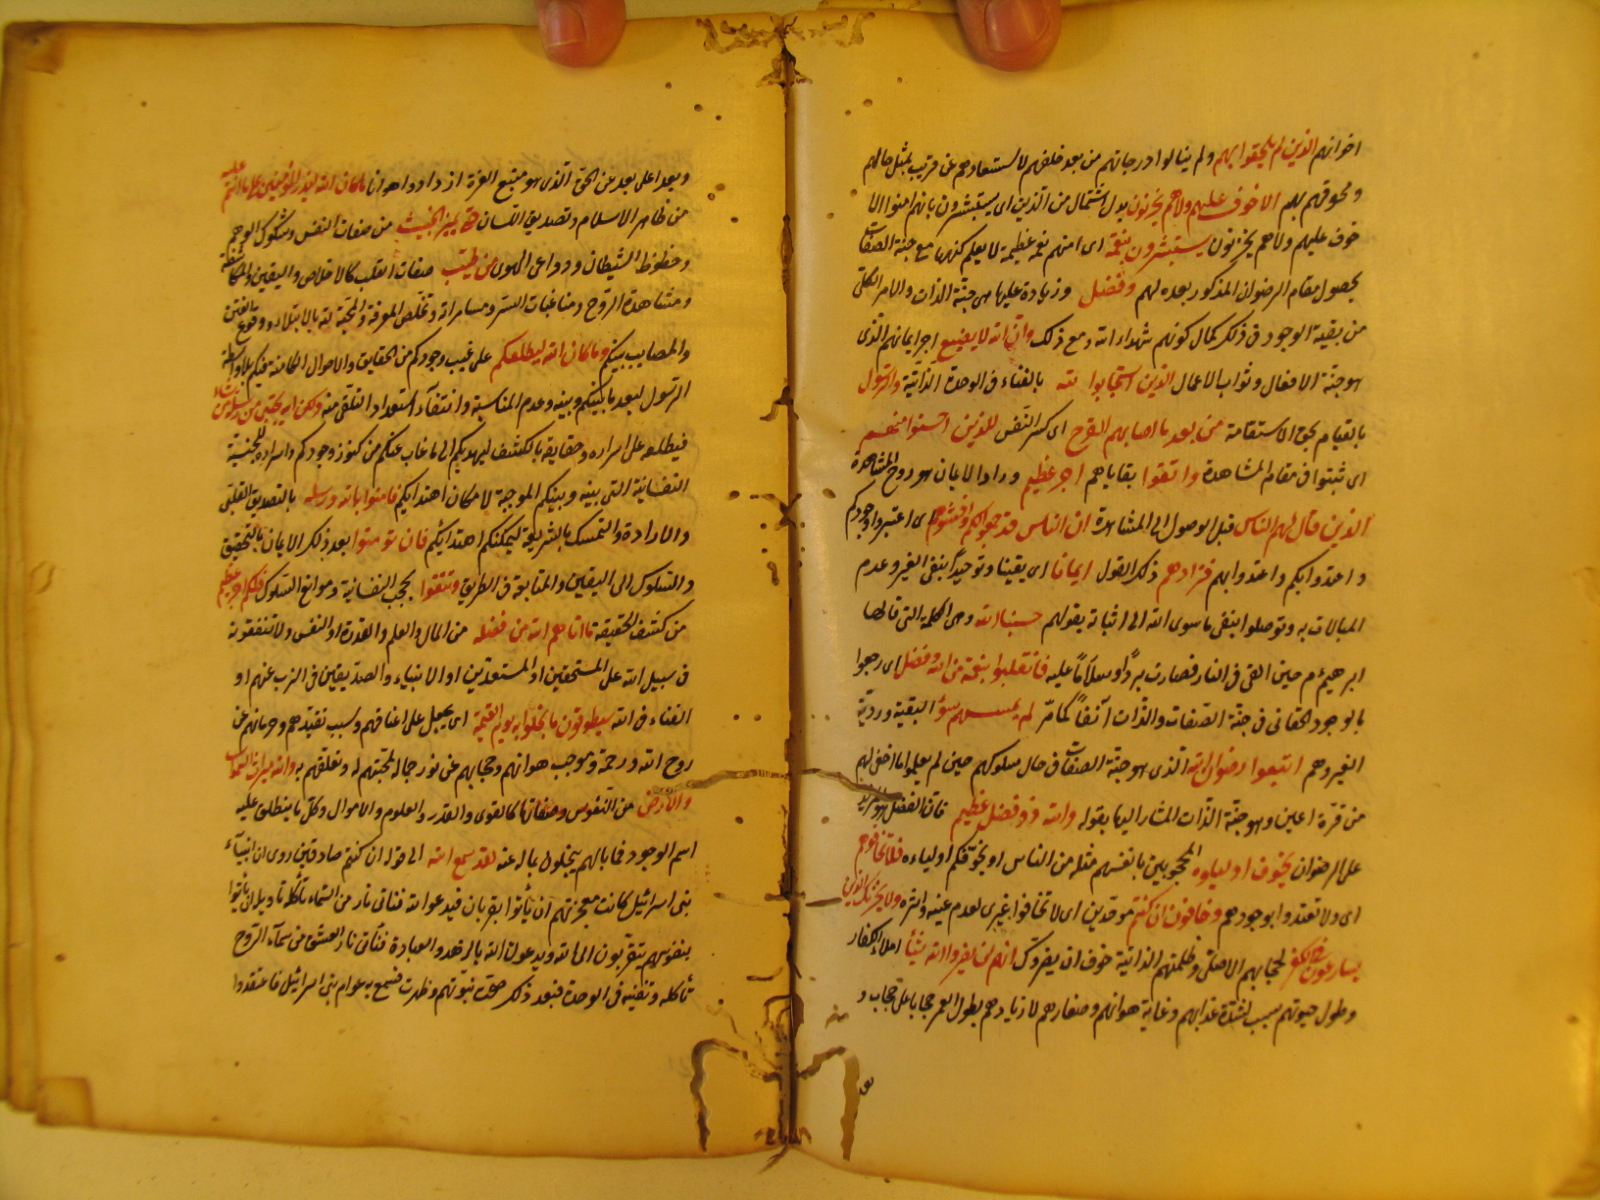 اخوانهم الذين لم يلحقوا بهم ولم ينالوا درجاتهم من بعد خلفهم لاستسعادهم عن قريب بمثل حالهم
ولحوقهم بهم الا خوف عليهم ولا هم يحزنون بدل اشتمال من الذين اى يستبشرون بانهم امنوا الا
خوف عليهم ولا هم يحزنون يستبشرون بنعمة اى امنهم نعمة عظيمة لا يعلم كنهها مع جنة الصفات
بحصول مقام الرضوان المذكور بعده لهم وفضل وزيادة عليها هى جنة الذات والامر الكلى
من بقية الوجود فى ذلك كمال كونهم شهداء الله ومع ذلك وان الله لا يضيع اجر ايمانهم الذى
هو جنة الافعال وثواب الاعمال الذين استجابوا لله بالفناء فى الوحدة الذاتية والرسول
بالقيام بحق الاستقامة من بعد ما اصابهم القرح اى كسر النفس للذين احسنوا منهم
اى ثبتوا فى مقام المشاهدة واتقوا بقاياهم اجر عظيم وراء الايمان هو روح المشاهدة
الذين قال لهم الناس قبل الوصول الى المشاهدة ان الناس قد جمعوا لكم فاخشوهم اى اعتبروا وجودكم
واعتدوا بكم واعتدوا بهم فزادهم ذلك القول ايمانا اى يقينا وتوحيدا بنفى الغير وعدم
المبالات به وتوصلوا بنفى ما سوى الله الى اثباته بقولهم حسبنا الله وهى الكلمة التى قالها
ابرهيم م حين القى فى النار فصارت بردا وسلاما عليه فانقلبوا بنعمة من الله وفضل اى رجعوا
بالوجود الحقانى فى جنة الصفات والذات آنفا كما مر لم يمسسهم سوء البقية وردية
الغير وهم اتبعوا رضوان الله الذى هو جنة الصفات فى حال سلوكهم حين لم يعلموا ما اخفى لهم
من قرة اعين وهو جنة الذات المشار اليها بقوله والله ذو فضل عظيم فان الفضل هو المزيد
على الرضوان يخوف اولياءه المحجوبين بانفسهم مثله من الناس او يخوفكم اولياءه فلا تخافوهم
اى ولا تعتدوا بوجودهم وخافون ان كنتم موحدين اى لا تخافوا غيرى لعدم عينه واثره ولا يحزنك الذين
يسارعون فى الكفر لحجابهم الاصلى وظلمتهم الذاتية خوف ان يضروك انهم لن يضروا الله شيئا املاء الكفار
وطول حيوتهم سبب لشدة عذابهم وغاية هوانهم وصغارهم لازديادهم بطول العمر حجابا على حجاب و
وبعدا على بعد عن الحق الذى هو منبع العزة ازدادوا هوانا ما كان الله ليذر المؤمنين على ما انتم عليه
من ظاهر الاسلام وتصديق اللسان حتى يميز الخبيث من صفات النفس وشكوك الوهم
وحظوظ الشيطان ودواعى الهوى من الطيب صفات القلب كالاخلاص واليقين والمكاشفة
ومشاهدة الروح ومناغيات السر ومسامراته وتخلص المعرفة والمحبة لله بالابتلاء ووقوع الفتن
والمصايب بينكم وما كان الله ليطلعكم على غيب وجودكم من الحقايق والاحوال الكامنة فيكم بلا واسطة
الرسول لبعد ما بينكم وبينه وعدم المناسبة وانتفاء استعداد التلقى منه ولكن الله يجتبى من رسله من يشاء
فيطلعه على اسراره وحقايقه بالكشف ليهديكم الى ما غاب عنكم من كنوز وجودكم واسراره للجنسية
النفسانية التى بينه وبينكم الموجبة لامكان اهتدائكم فامنوا بالله ورسله بالتصديق القلبى
والارادة والتمسك بالشريعة ليمكنكم اهتدائكم فان تؤمنوا بعد ذلك الايمان بالتحقيق
والسلوك الى اليقين والمتابعة فى الطريق وتتقوا بحجب النفسانية وموانع السلوك فلكم اجر عظيم
من كشف الحقيقة ما اتاهم الله من فضله من المال والعلم والقدرة او النفس ولا ينفقونه
فى سبيل الله على المستحقين او المستعدين او الانبياء والصديقين فى الذب عنهم او
الفناء فى الله سيطوقون ما بخلوا به يوم القيمة اى يجعل غل اعناقهم وسبب تقيدهم وحرمانهم عن
روح الله ورحمته وموجب هوانهم وحجابهم عن نور جماله لمحبتهم له وتعلقهم به ولله ميراث السموات
والارض من النفوس وصفاتها كالقوى والقدر والعلوم والاموال وكل ما ينطلق عليه
اسم الوجود فما بالهم يبخلون بماله عنه لقد سمع الله الى قوله ان كنتم صادقين روى ان انبياء
بنى اسرائيل كانت معجزتهم ان يأتوا بقربان فيدعوا الله فتأتى نار من السماء تأكله تأويله ان يأتوا
بنفوسهم يتقربون الى الله ويدعون الله بالزهد والعبادة فتأتى نار العشق من سماء الروح
تأكله وتفنيه فى الوحدة فبعد ذلك صحت نبوتهم وظهرت فسمع به عوام بنى اسرائيل فاعتقدوا